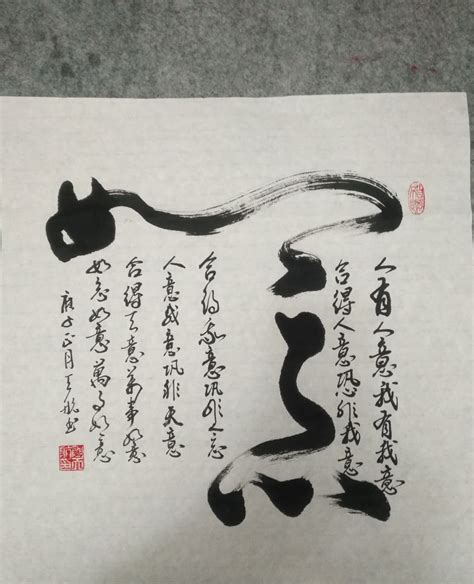 如意
人有人意我有我意
合得人意恐非我意
合得我意恐非人意
人意我意恐非天意
合得天意萬事如意
如意如意萬事如意
庚子正月